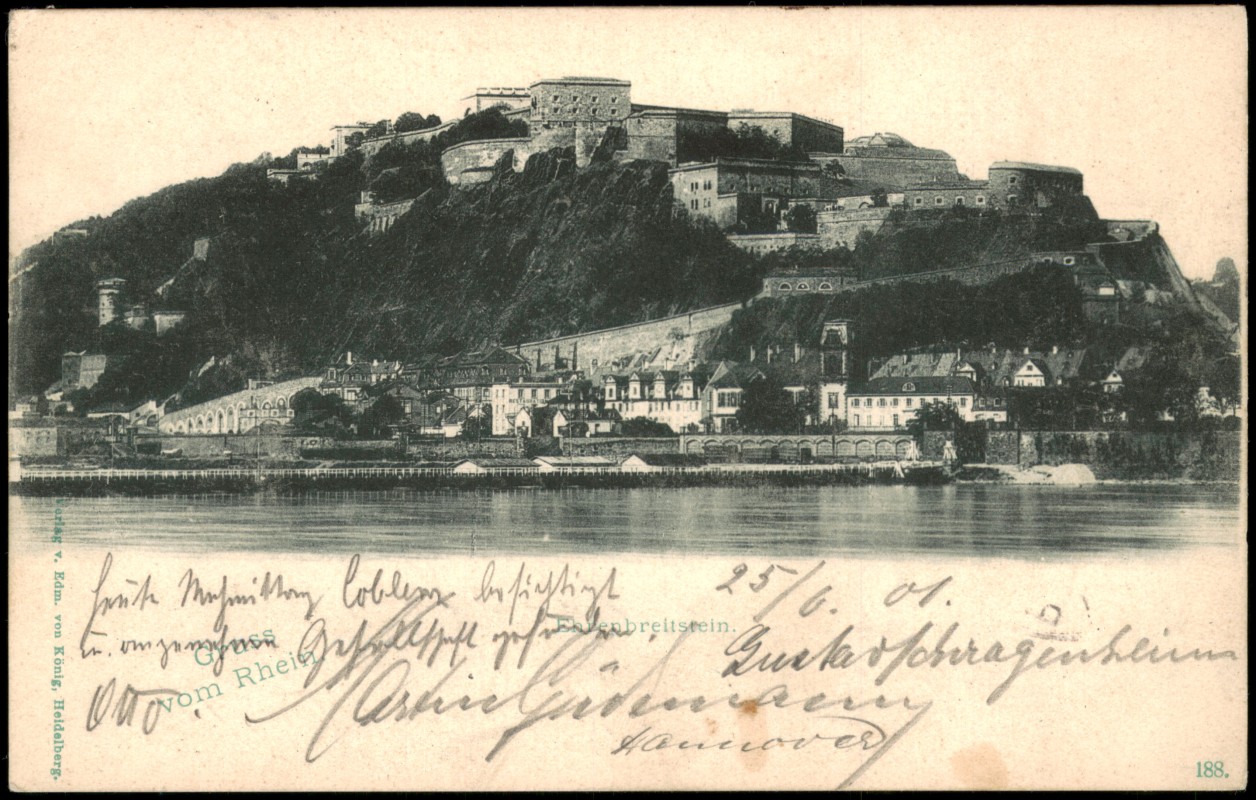 Heute Nachmittag Coblenz besichtigt
u. angenehme Gesellschaft gefunden.
Otto.
25/6. 01.
Gustav Schragenheim
Martin Südemann
Hannover
Gruss
vom Rhein
Ehrenbreitstein.
Verlag v. Edm. von König, Heidelberg.
188.